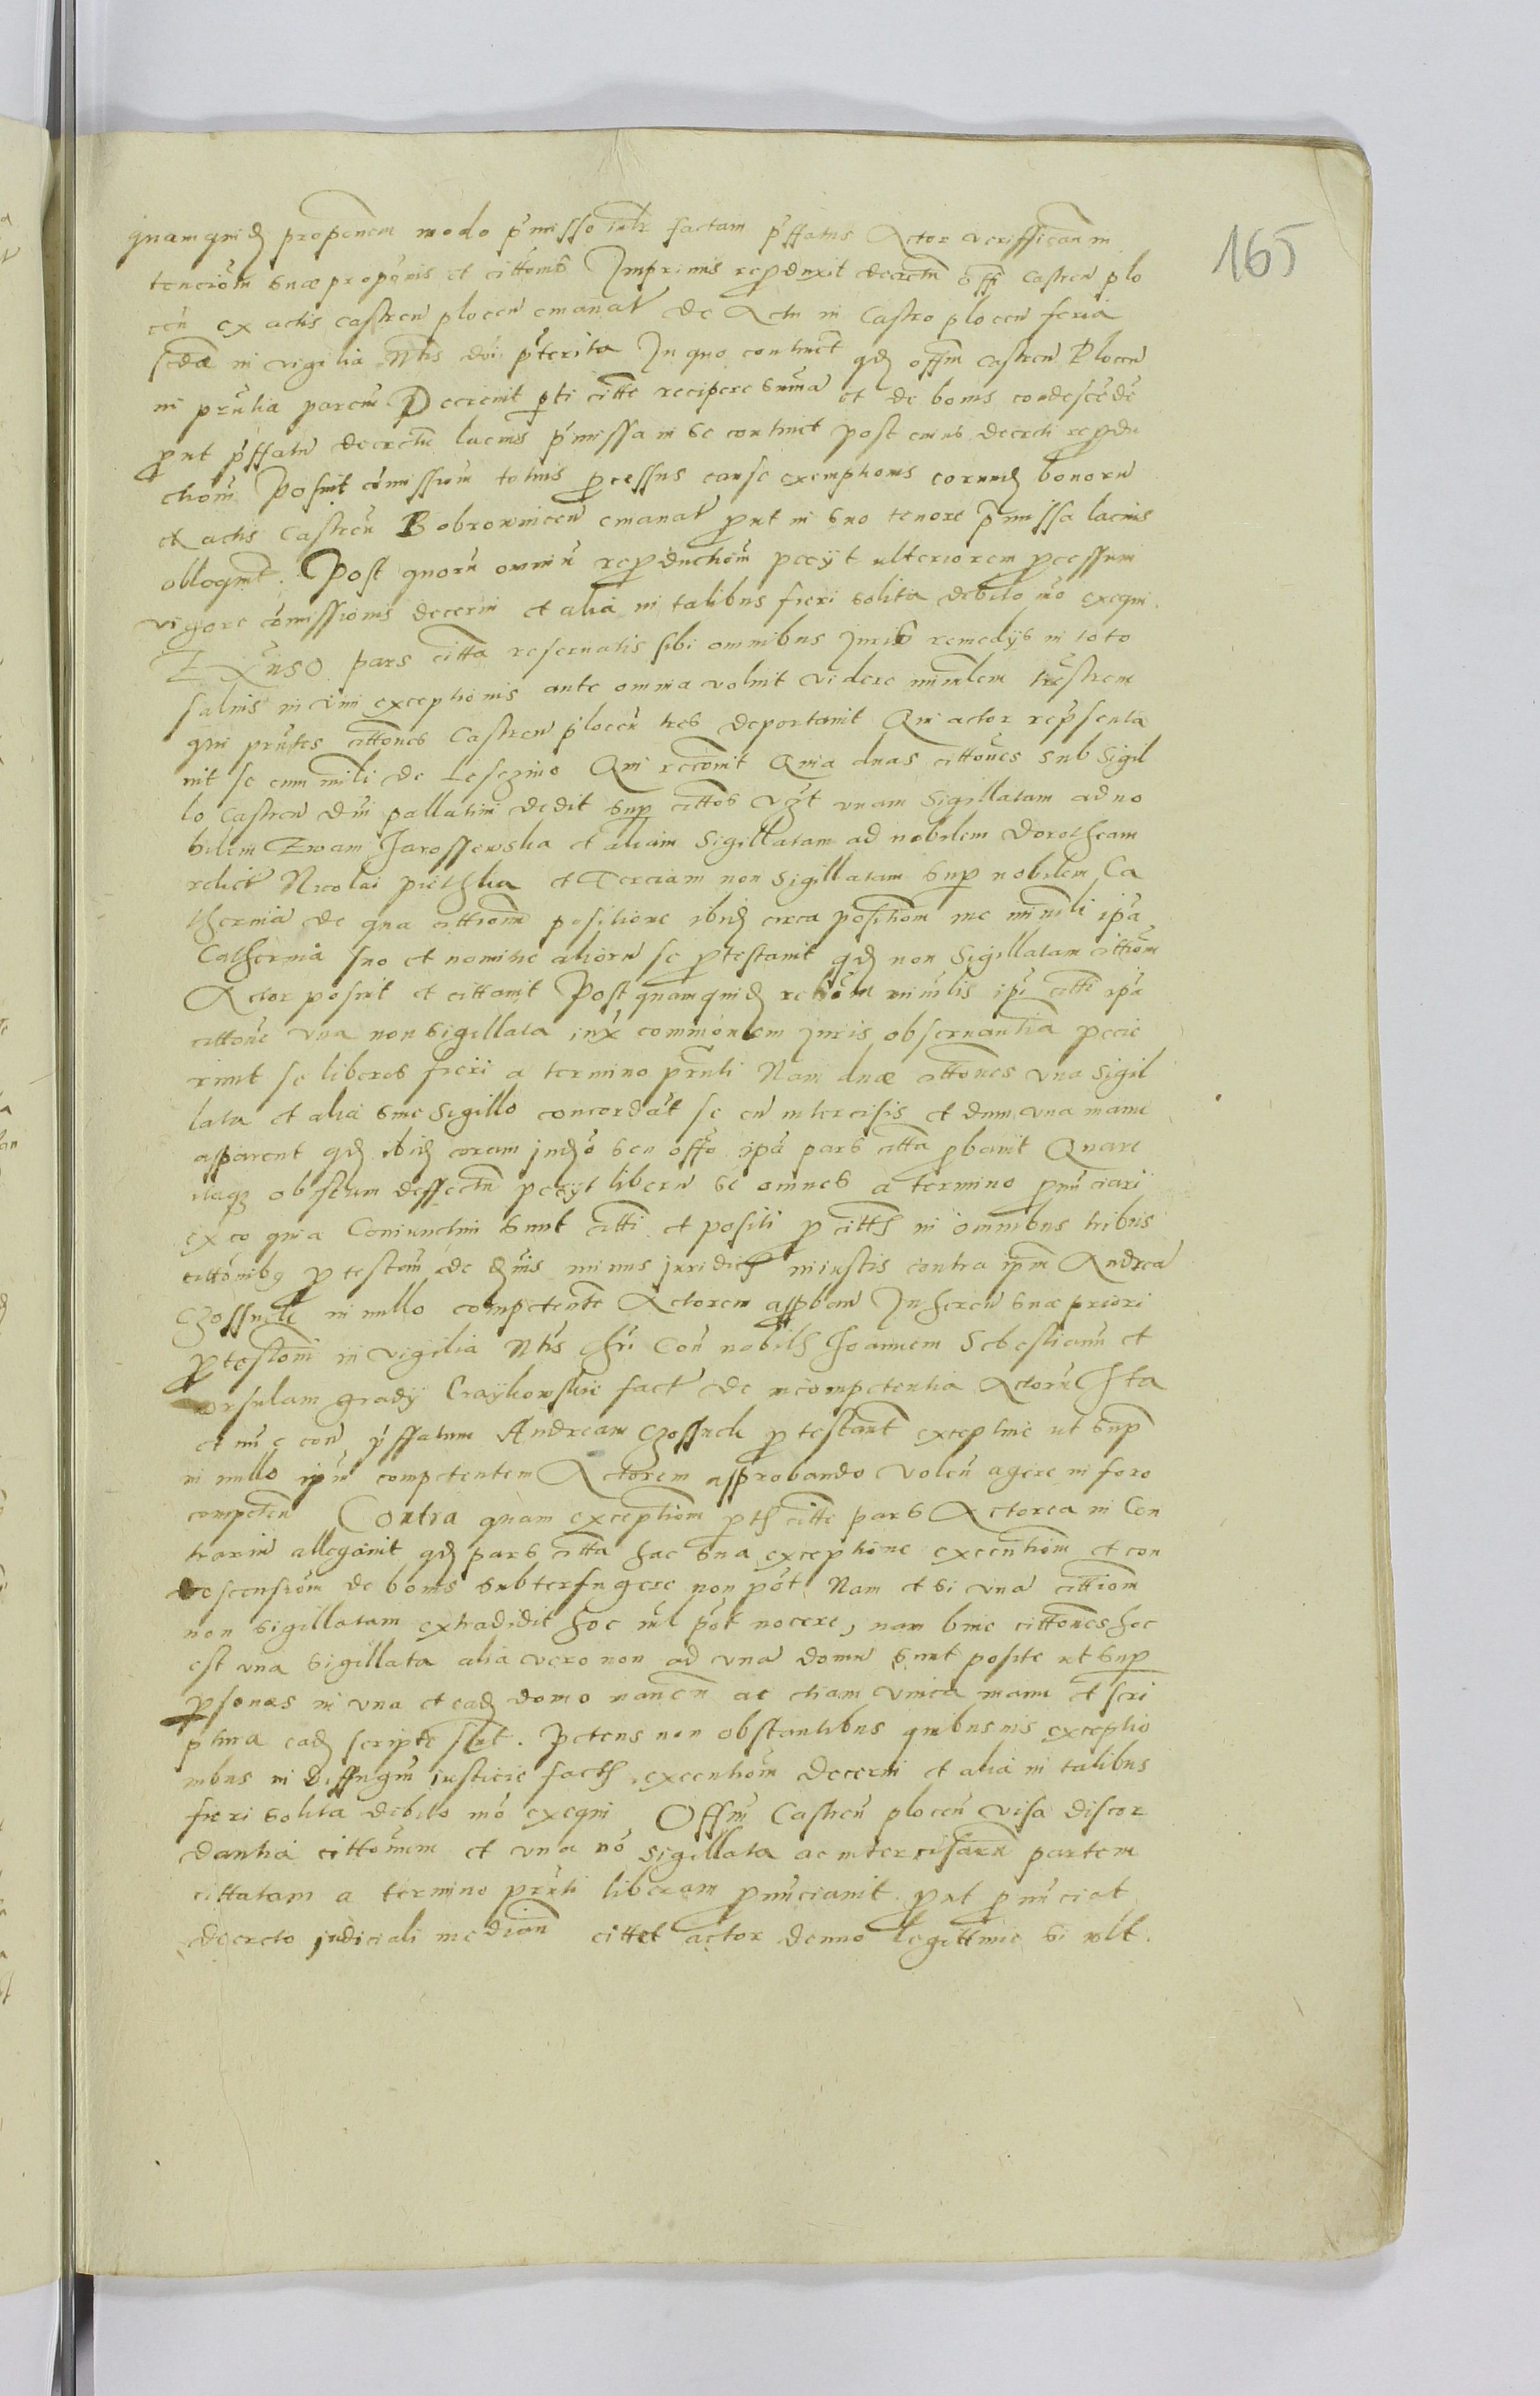 165
quamquid propōnem modo p̄misso talr̄ factam p̄ffatus Actor verifficañ in
tenciōm suæ propōnis et cittōnis Imprimis reproduxit decretū offi Castreñ plo
ceñ ex actis castreñ ploceñ emanat̄ de Actu in Castro ploceñ feria
scdā in vigilia Ntis dñi p̄terita In quo continet̄ qd offm̄ castreñ Ploceñ
in pñtia parciū Decrevit pti citte recipere sūma et de bonis condescēde
prout p̄ffatū decretū lacius p̄missa in se continet Post cuius decreti reprodu
ctiōm Posuit cōmissiōm totius processus cause exemptionis eorund bonorū
ex actis Castreñ Bobrownicen̄ emanat̄ prout in suo tenore p̄missa lacius
obloqunt̄. Post quorū omniū reproductiōm pecyt ulteriorem processum
vigore cōmissionis decerni et alia in talibus fieri solita debito mō exequi.
Exuso pars citta reservatis sibi omnibus Jurib remedÿs in toto
salvis in vim exceptionis ante omnia voluit videre mīnlem trēstrem
qui pñtes cittones Castreñ ploceñ tres deportavit Qui actor repsenta
vit se cum mīli de Lesczino Qui recōvit Quia duas cittones sub Sigil
lo Castreñ dni pallatini dedit sup cittos vzt unam Sigillatam ad no
bilem Ewam Jarossewska et aliam Sigillatam ad nobilem Dorotheam
relict̄ Nicolai piethka et Terciam non Sigillatam Sup nobilem Ca
therina de qua cittiōm positione ibid circa positiōm me mīnli ipa
Catherina suo et nomine aliorū se protestavit qd non Sigillatam cittiōm
Actor posuit et cittavit Postquamquid reliōm mīnlis ipi citti ipa
cittone una non sigillata iux̄ communem Juris observantia pecie
runt se liberos fieri a termino pñti Nam duæ cittones una Sigil
lata et alia sine Sigillo concordāt se cū intercisis et dum una manu
apparent qd ibid coram Judō seu offo ipa pars citta probavit Quare
itaqz ob istum deffectū pecyt liberū se omnes a termino pnūciari
ex eo quia Coniunctim sunt citti et positi p citt in omnibus tribus
cittonibz protestañ de dnis minus juridice iniustis contra ipm Andrea
Czossnek in nullo competente Actorem approbañ Inhereñ suæ priori
protestōni in vigilia Ntis Chri Con̄ nobil Joannem Sebestianū et
Vrsulam grady Craykowskie fact̄ de incompetentia Actorū Ita
et nūc con̄ p̄ffatum Andream Czossnek protestant̄ exceptive ut sup
in nullo ipm competentem Actorem approbando Voleñ agere in foro
competeñ Contra quam exceptiōm ptis citte pars Actorea in Con
trariū allegavit qd pars citta hac sua exceptione executiōm et con
descensiōm de bonis subterfugere non pot Nam et si una cittiōm
non sigillatam extradidit hoc nil pot nocere, nam bine cittones hoc
est una sigillata alia vero non ad una domū sunt posite ut sup
personas in una et ead domo maneñ ac etiam unica manu et scri
ptura ead scripte sūt. Petens non obstantibus quibusvis exceptio
nibus in diffugm iusticie fact, executiōm decerni et alia in talibus
fieri solita debito mō exequi Offm̄ Castreñ ploceñ visa discor
dantia cittonum et una nō sigillata ac intercisarū partem
cittatam a termino pñti liberam pnūciavit prout pnūciat
decreto judiciali mediañ cittet actor denuo legittime si vlt.